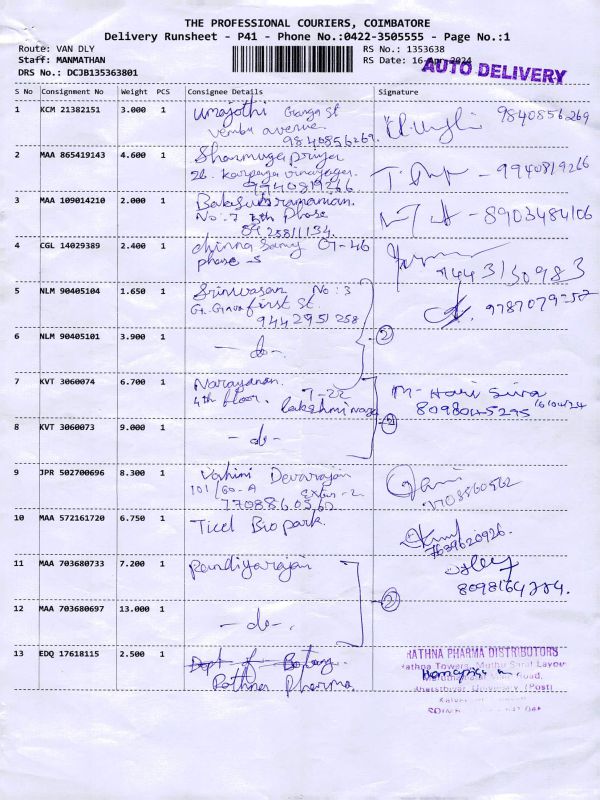 THE PROFESSIONAL COURIERS, COIMBATORE
Delivery Runsheet - P41 - Phone No.:0422-3505555 - Page No.:1
Route: VAN DLY RS No.: 1353638
Staff: MANMATHAN RS Date: 16-Apr-2024
AUTO DELIVERY
DRS No.: DCJB135363801
S No Consignment No Weight PCS Consignee Details Signature
1 KCM 21382151 3.000 1 Umajothi Ganga St 9840856269
Vembu avenue
9840856269.
2 MAA 865419143 4.600 1 Shanmuga priya - 9940819266
26. Karpaga vinayagar.
9940819266
3 MAA 109014210 2.000 1 Balasubramanian. - 8903484106
No. 7 4th Phase
8925811134.
4 CGL 14029389 2.400 1 chinna Samy G-46
phase -5 9443130983
5 NLM 90405104 1.650 1 Srinivasan No: 3 9787079258
first St.
9442951258
6 NLM 90405101 3.900 1 - do - . 2
7 KVT 3060074 6.700 1 Narayanan. 7-22 M- Hari Siva
4th floor. Lakshmi 8098045295 16/04/24
8 KVT 3060073 9.000 1 - do - 2
9 JPR 502700696 8.300 1 Vahini Devarajan
101/60-A
10 MAA 572161720 6.750 1 Ticel Bio park. 7639620926.
11 MAA 703680733 7.200 1 Pandiyarajan
8098164284.
12 MAA 703680697 13.000 1 - do - . 2
13 EDQ 17618115 2.500 1 Dept of Botany. RATHNA PHARMA DISTRIBUTORS
Rathna Pharma. Rathna Towers, Muthu
Road,
Bharathiyar University (Post)